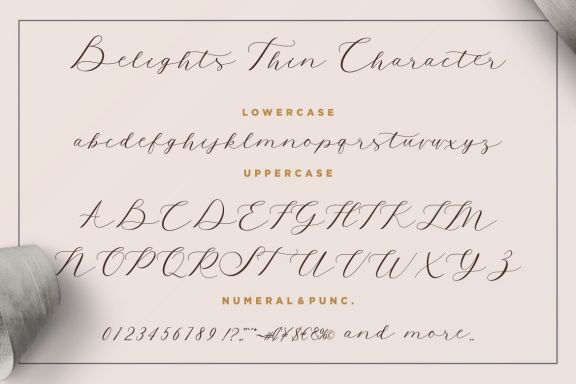 Delights Thin Character
LOWERCASE
abcdefghijklmnopqrstuvwxyz
UPPERCASE
ABCDEFGHIJKLM
NOPQRSTUVWXYZ
NUMERAL&PUNC.
0123456789!? and more..